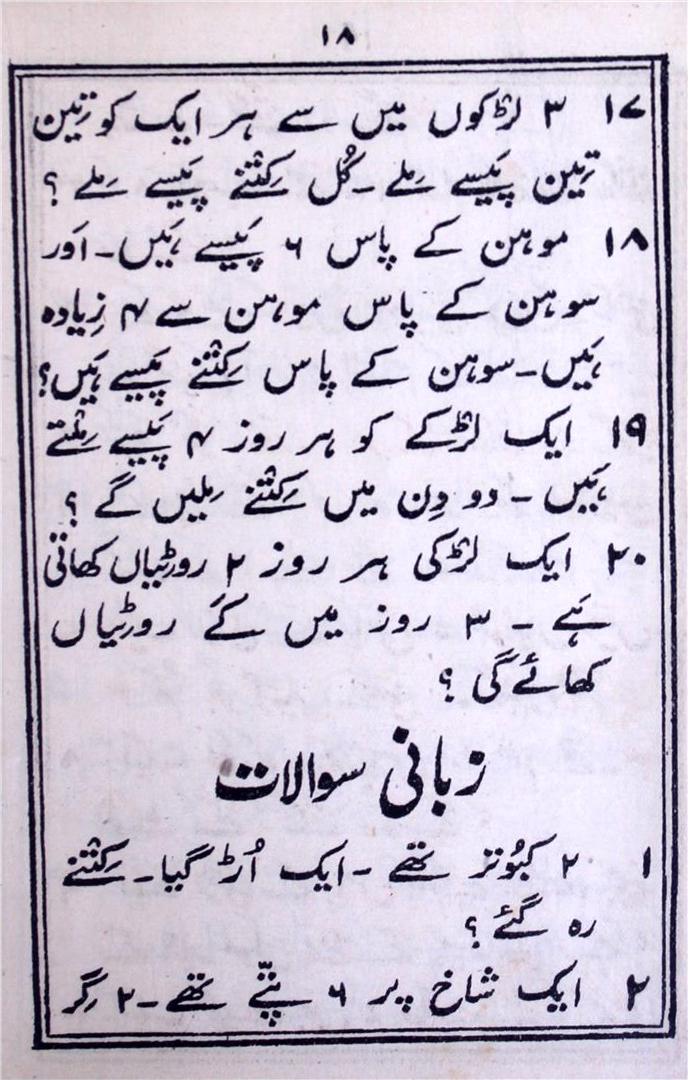 ۱۸
۱۷ ۳ لڑکوں میں سے ہر ایک کو تِین
تِین پَیسے مِلے ـ کُل کِتنے پَیسے مِلے ؟
۱۸ موہن کے پاس ۶ پَیسے ہَیں ـ اَور
سوہن کے پاس موہن سے ۴ زِیادہ
ہَیں ـ سوہن کے پاس کِتنے پَیسے ہَیں ؟
۱۹ ایک لڑکے کو ہر روز ۴ پَیسے مِلتے
ہَیں ـ دو دِن میں کِتنے مِلیں گے ؟
۲۰ ایک لڑکی ہر روز ۲ روٹِیاں کھاتی
ہَے ـ ۳ روز میں کَے روٹِیاں
کھائے گی ؟
زبانی سوالات
۱ ۲ کبُوتر تھے ـ ایک اُڑ گیا ـ کِتنے
رہ گئے ؟
۲ ایک شاخ پر ۶ پتّے تھے ـ ۲ گِر